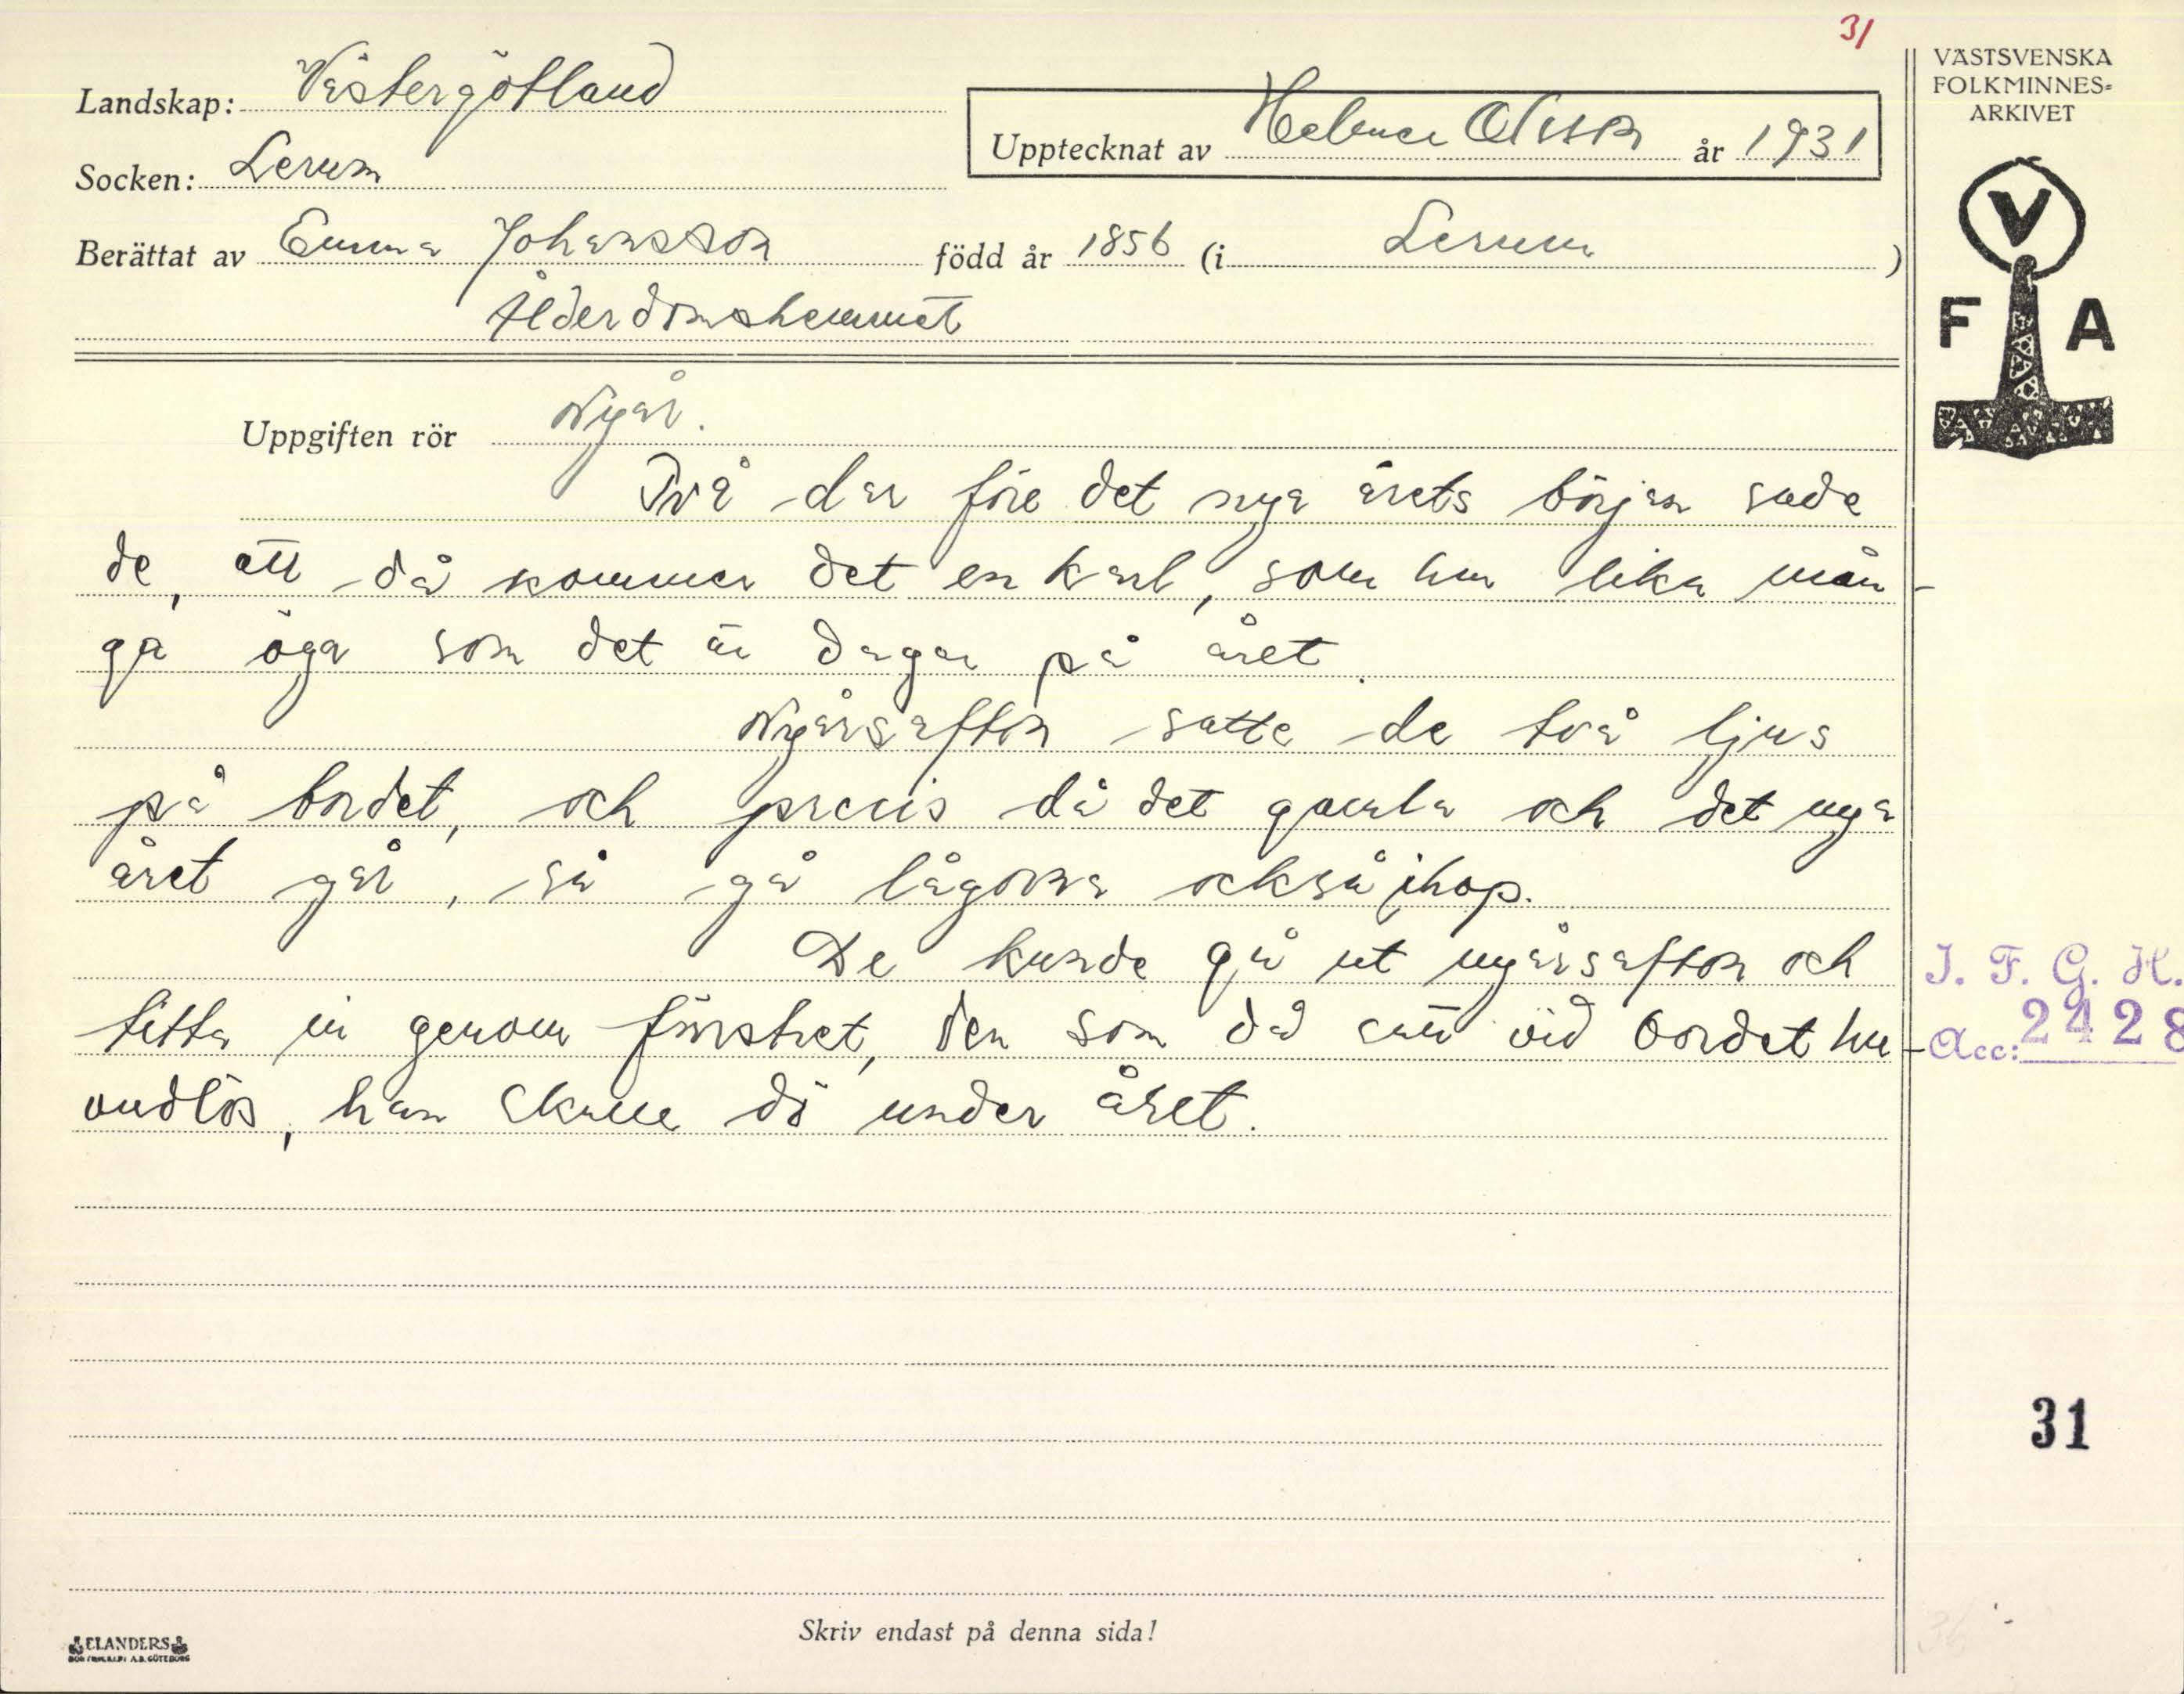 31
Landskap: Västergötland
Socken: Lerum
Upptecknat av Helmer Olsson år 1931
Berättat av Emma Johansson född år 1856 (i Lerum)
Ålderdomshemmet
VÄSTSVENSKA
FOLKMINNES=
ARKIVET
V
F A
Uppgiften rör Nyår.
Två dar före det nya årets början sade
de, att då kommer det en karl, som har lika mån-
ga öga som det är dagar på året.
Nyårsafton satte de två ljus
på bordet, och precis då det gamla och det nya
året går, så gå lågorna också ihop.
De kunde gå ut nyårsafton och
titta in genom fönstret, den som då satt vid bordet hu-
vudlös, han skulle dö under året.
I. F. G. H.
Acc: 2428
31
Skriv endast på denna sida!
ELANDERS